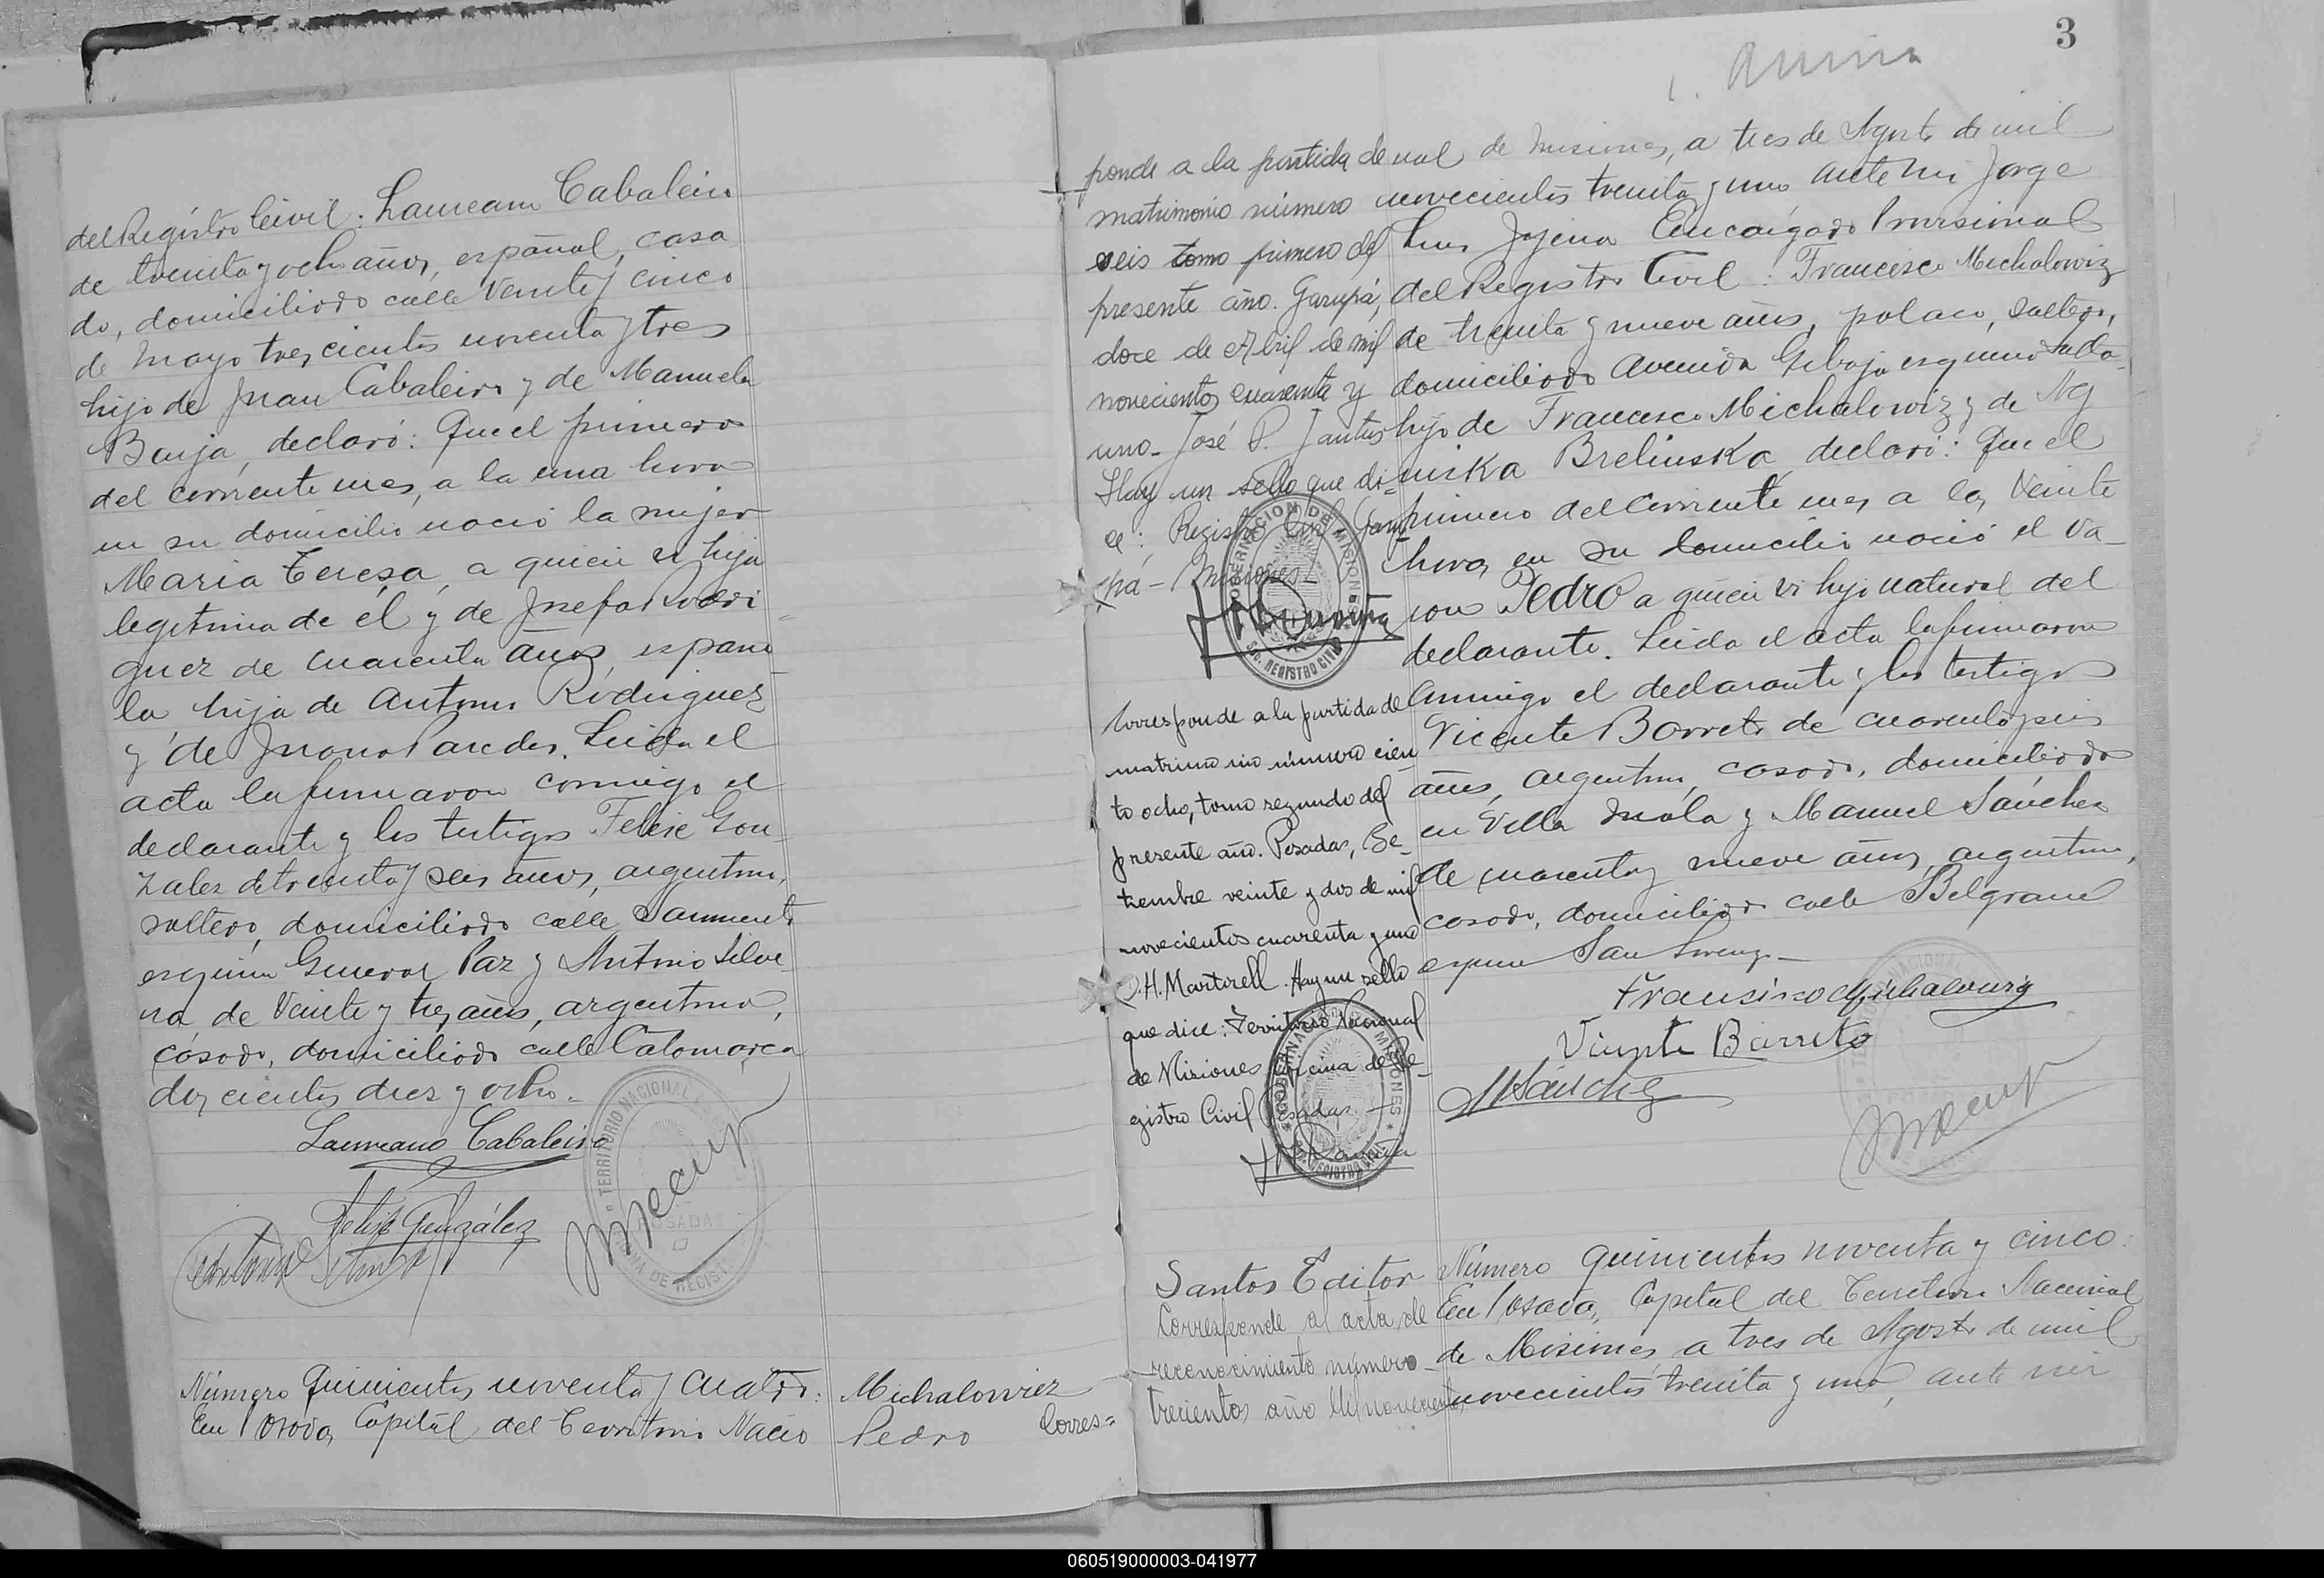 del Registro Civil: Laureano Cabaleiro
de treinta y ocho años, español, casa
do, domiciliado calle Veinte y cinco
de Mayo trescientos noventa y tres
hijo de Juan Cabaleiro y de Manuela
Barja, declaró: Que el primero
del corriente mes, a la una hora
en su domicilio nació la mujer
María Teresa, a quien vi hija
legítima de él y de Josefa Rodri
guez de cuarenta años, españo
la hija de Antonio Rodriguez
y de Juana Paredes. Leida el
acta la firmaron conmigo el
declarante y los testigos Felise Gon
zalez de treinta y seis años, argentino,
soltero, domiciliado calle Sarmiento
esquina General Paz y Antonio Silve
ra de Veinte y tres años, argentino,
casado, domiciliado calle Catamarca
doscientos diez y ocho.-
Laureano Cabaleiro
Felise González
TERRITORIO NACIONAL
POSADAS
Número Quinientos noventa y cuatro:
En Posadas, Capital del Territorio Nacio
Michalowiez
Pedro
Corres=
3
ponde a la partida de
matrimonio número
seis tomo primero del
presente año. Garupá,
doce de Abril de mil
novecientos cuarenta y
uno- José P. Jantus
Hay un sello que di=
ce: Registro Civil Garu
pá - Misiones-
GOBERNACION DE MISIONES
REGISTRO CIVIL
nal de Misiones, a tres de Agosto de mil
novecientos treinta y uno, ante mi Jorge
Luis Encargado Provisional
del Registro Civil: Francisco Michalowiz
de treinta y nueve años, polaco, soltero,
domiciliado Avenida esquina
hijo de Francisco Michalowiz y de Ag
niska Brelinska, declaró: Que el
primero del corriente mes a las Veinte
horas en su domicilio nació el va_
ron Pedro a quien vi hijo natural del
declarante. Leida el acta la firmaron
conmigo el declarante y los testigos
Vicente Barreto de cuarenta y seis
años, argentino, casado, domiciliado
en Villa Mola y Manuel Sánchez
de cuarenta y nueve años, argentino,
casado, domiciliado calle Belgrano
esquina San Lorenzo.-
Vicente Barreto
MSánchez
Corresponde a la partida de
matrimonio número cien
to ocho, tomo segundo del
presente año. Posadas, Se_
tiembre veinte y dos de mil
novecientos cuarenta y uno
D. H. Martirell. Hay un sello
que dice: Territorio Nacional
de Misiones Oficina de Re_
gistro Civil Posadas.-
GOBERNACION MISIONES
REGISTRO CIVIL
Santos Editor
Corresponde al acta de
reconocimiento número
trecientos año Mil novecientos
Número quinientos noventa y cinco:
En Posadas, Capital del Territorio Nacional
de Misiones a tres de Agosto de mil
novecientos treinta y uno, ante mi
060519000003-041977